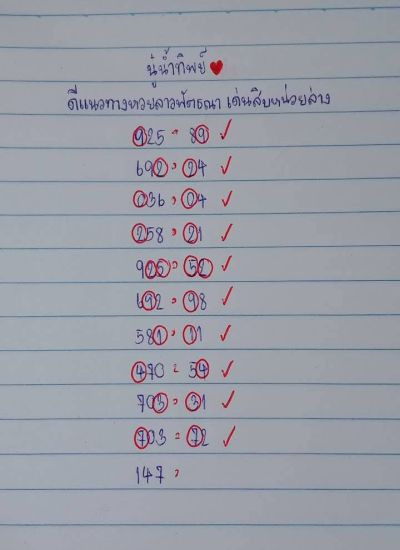 นู๋น้ำทิพย์ ❤
ดีแนวทางหวยลาวพัฒธณา เด่นสิบหน่วยล่าง
925 = 89 ✓
692 = 24 ✓
036 = 04 ✓
258 = 21 ✓
925 = 52 ✓
692 = 98 ✓
581 = 11 ✓
470 = 54 ✓
703 = 31 ✓
703 = 72 ✓
147 =